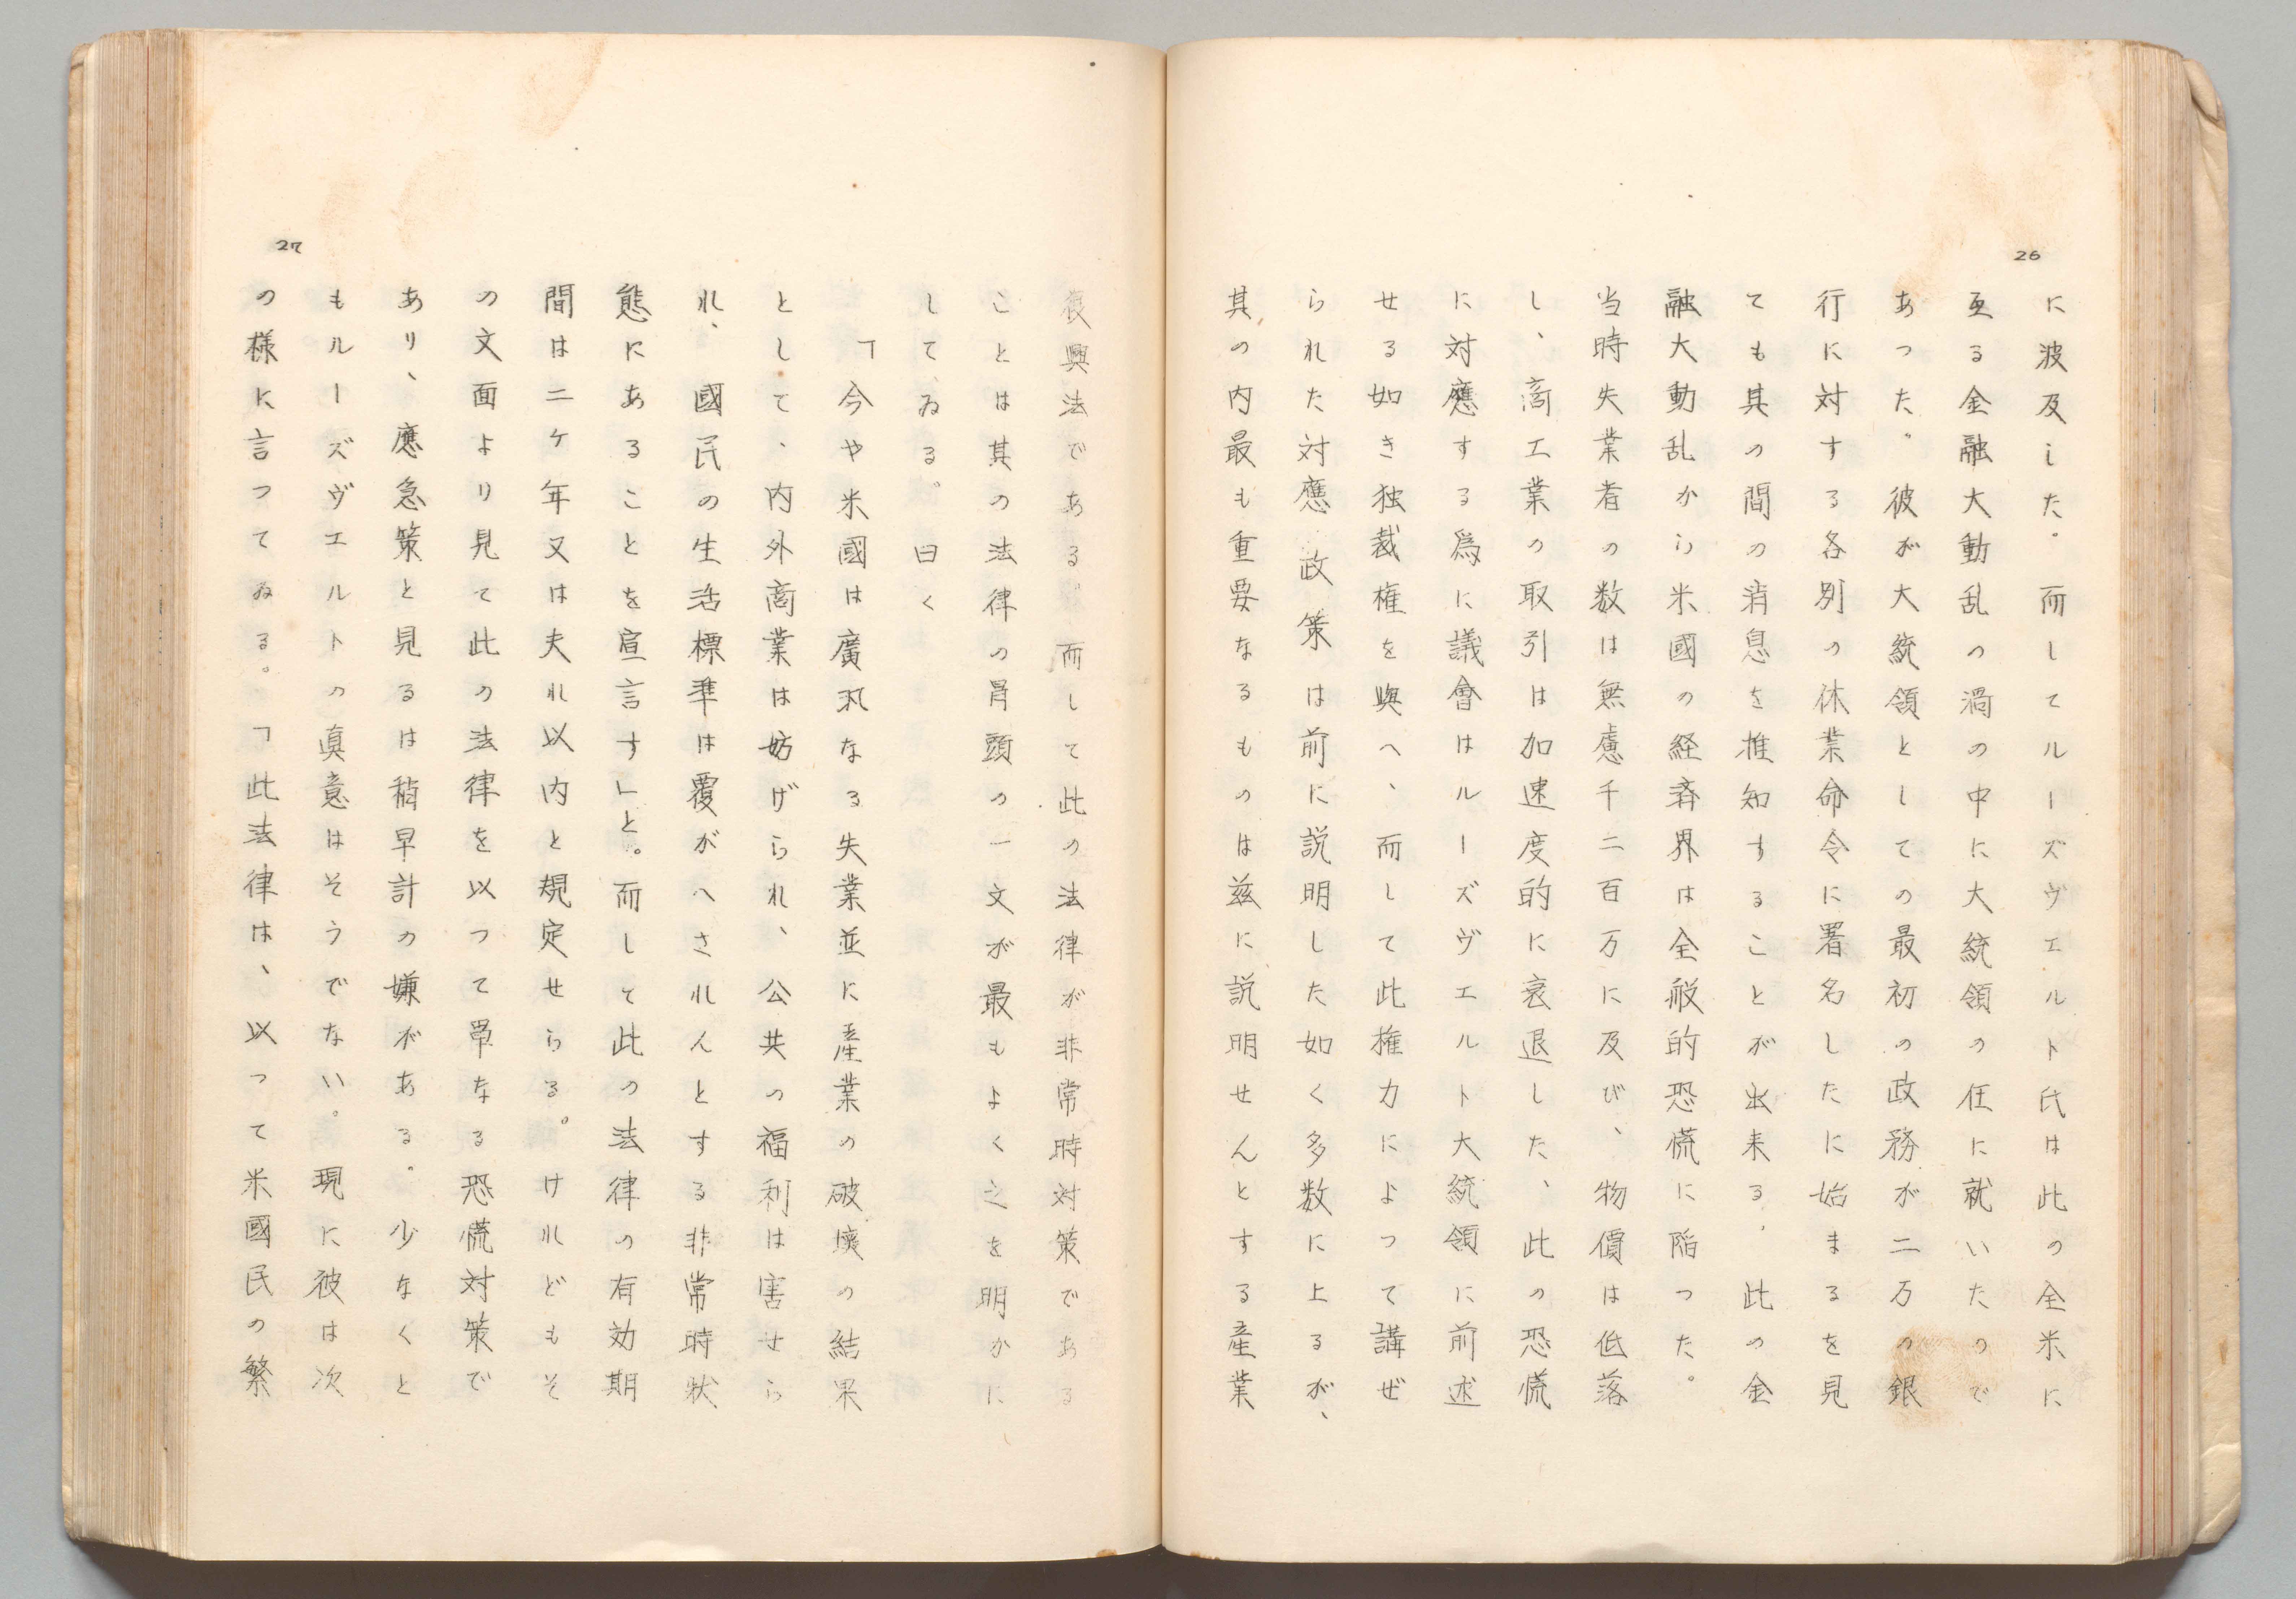 26
に波及した。而してルーズヴエルト氏は此の全米に
亙る金融大動乱の渦の中に大統領の任に就いたので
あつた。彼が大統領としての最初の政務が二万の銀
行に対する各別の休業命令に署名したに始まるを見
ても其の間の消息を推知することが出来る。此の金
融大動乱から米國の経済界は全般的恐慌に陥つた。
当時失業者の数は無慮千二百万に及び、物價は低落
し、商工業の取引は加速度的に衰退した、此の恐慌
に対應する爲に議會はルーズヴエルト大統領に前述
せる如き独裁権を與へ、而して此権力によつて講ぜ
られた対應政策は前に説明した如く多数に上るが、
其の内最も重要なるものは茲に説明せんとする産業
復興法である。而して此の法律が非常時対策である
ことは其の法律の冐頭の一文が最もよく之を明かに
してゐる。曰く
「今や米國は廣汎なる失業並に産業の破壊の結果
として、内外商業は妨げられ、公共の福利は害せら
れ、國民の生活標準は覆がへされんとする非常時狀
態にあることを宣言す」と。而して此の法律の有効期
間は二ケ年又は夫れ以内と規定せらる。けれどもそ
の文面より見て此の法律を以つて單なる恐慌対策で
あり、應急策と見るは稍早計の嫌がある。少なくと
もルーズヴエルトの眞意はそうでない。現に彼は次
の様に言つてゐる。「此法律は、以つて米國民の繁
27